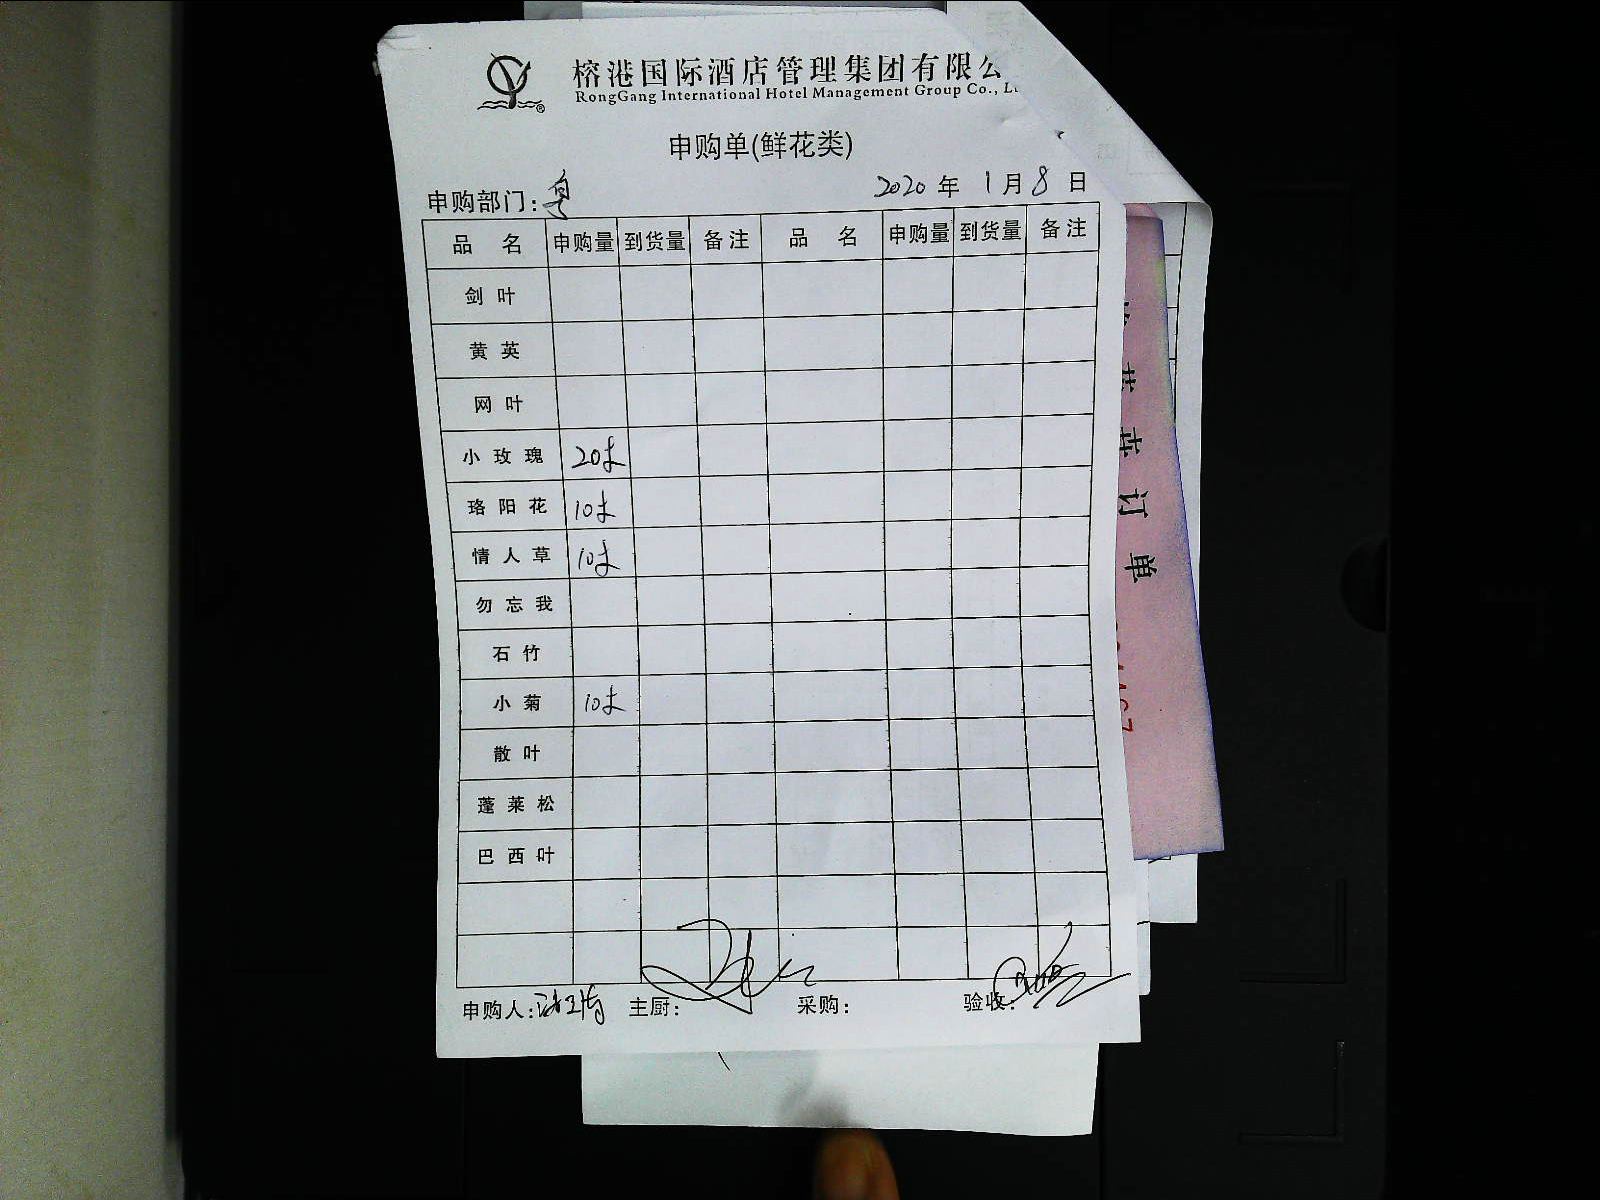 榕港国际酒店管理集团有限公
RongGang International Hotel Management Group Co., L
申购单(鲜花类)
申购部门:粤 2020年1月8日
品名 申购量 到货量 备注 品名 申购量 到货量 备注
剑叶
黄英
网叶
小玫瑰 20支
珞阳花 10支
情人草 10支
勿忘我
石竹
小菊 10支
散叶
蓬莱松
巴西叶
申购人: 主厨: 采购: 验收:
订单